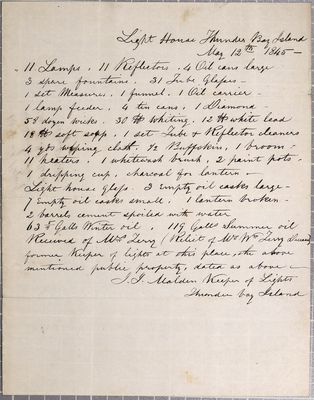 Light House Thunder Bay Island
May 12th 1845 —
11 Lamps. 11 Reflectors. 4 Oil cans large
3 spare fountains. 31 Tube Glasses —
1 set Measures. 1 funnel. 1 Oil carrier —
1 lamp feeder. 4 tin cans, 1 Diamond —
58 dozen wicks. 30 lb Whiting. 12 lb white lead
18 lb soft soap. 1 set Tube & Reflector cleaners
4 yds wiping cloth. 42 Buffskins, 1 broom —
11 heaters. 1 whitewash brush, 2 paint pots.
1 dripping cup, charcoal for lantern —
Light house Glass. 3 Empty oil casks large —
7 Empty oil casks small. 1 lantern broken —
2 barrels cement spoiled with water
63 Galls Winter oil. 119 Galls Summer oil
Received of Mrs Terry (Relict of Mr Wm Terry
former Keeper of lights at this place, the above
mentioned public property, dated as above —
J. J. Malden Keeper of Lights
Thunder bay Island